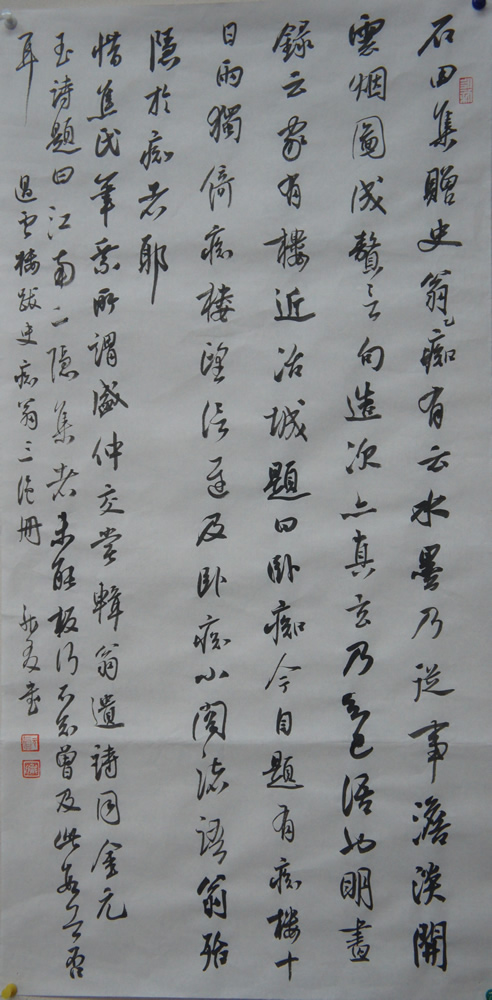 石田集贈史翁癡有云水墨乃從事澹淡開
雲烟圖成贅言句造次亦真玄乃知已語如明畫
錄云家有樓近冶城題曰卧痴今自題有痴樓十
日雨獨倚痴樓望信至及卧痴小閣諸語翁殆
隱於痴者耶
惜焦氏筆乘所謂盛仲交嘗輯翁遺詩同金元
玉詩題曰江南二隱集者未能板行不知曾及此與否
耳
過雲樓跋史痴翁三絕冊